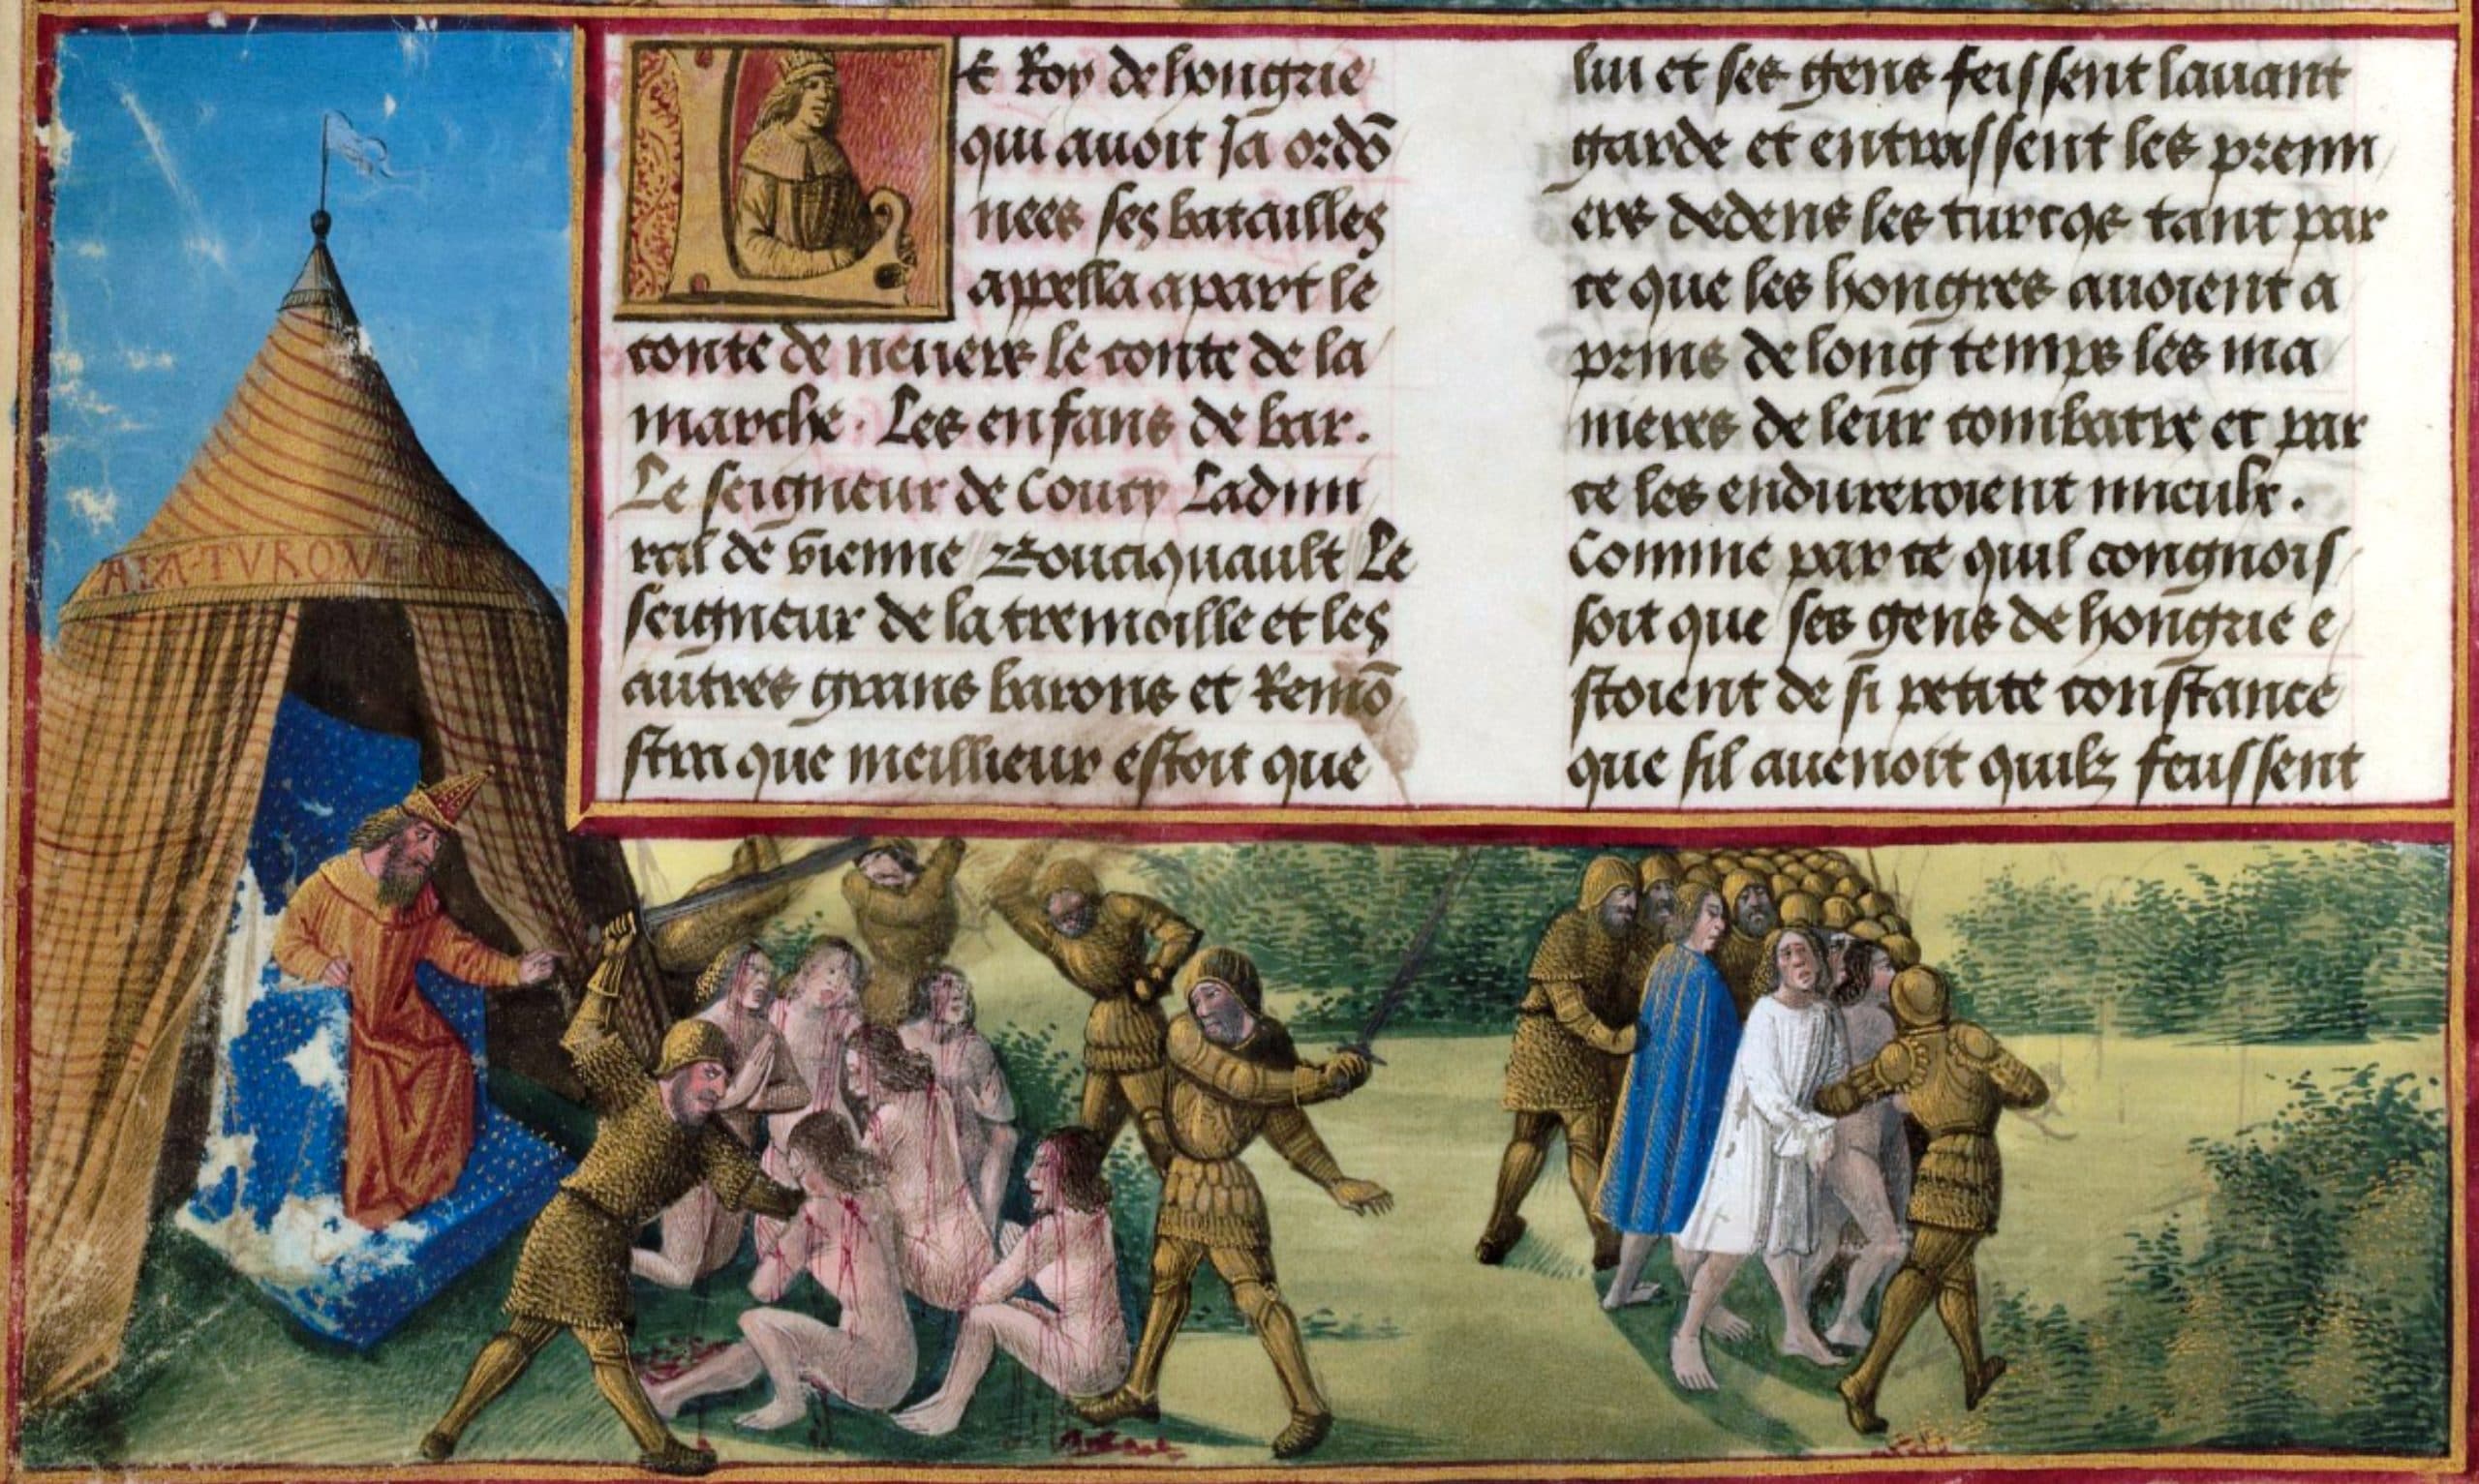 Le Roy de hongrie
qui auoit Ja ordō
nees ses batailles
appella apart le
conte de neuers le conte de la
marche. Les enfans de bar.
Le seigneur de Coucy Ladmi
ral de vienne Bouciquault Le
seigneur de la tremoille et les
autres grans barons et Remō
stra que meillieur estoit que
lui et ses gens feissent lauant
garde et entrassent les premi
ers dedens les turcqs tant par
ce que les hongres auoient a
prins de long temps les ma
nieres de leur combatre et par
ce les endureroient mieulx.
Comme par ce quil congnois
soit que ses gens de hongrie e
stoient de si petite constance
que sil auenoit quilz feussent
TVRQVE